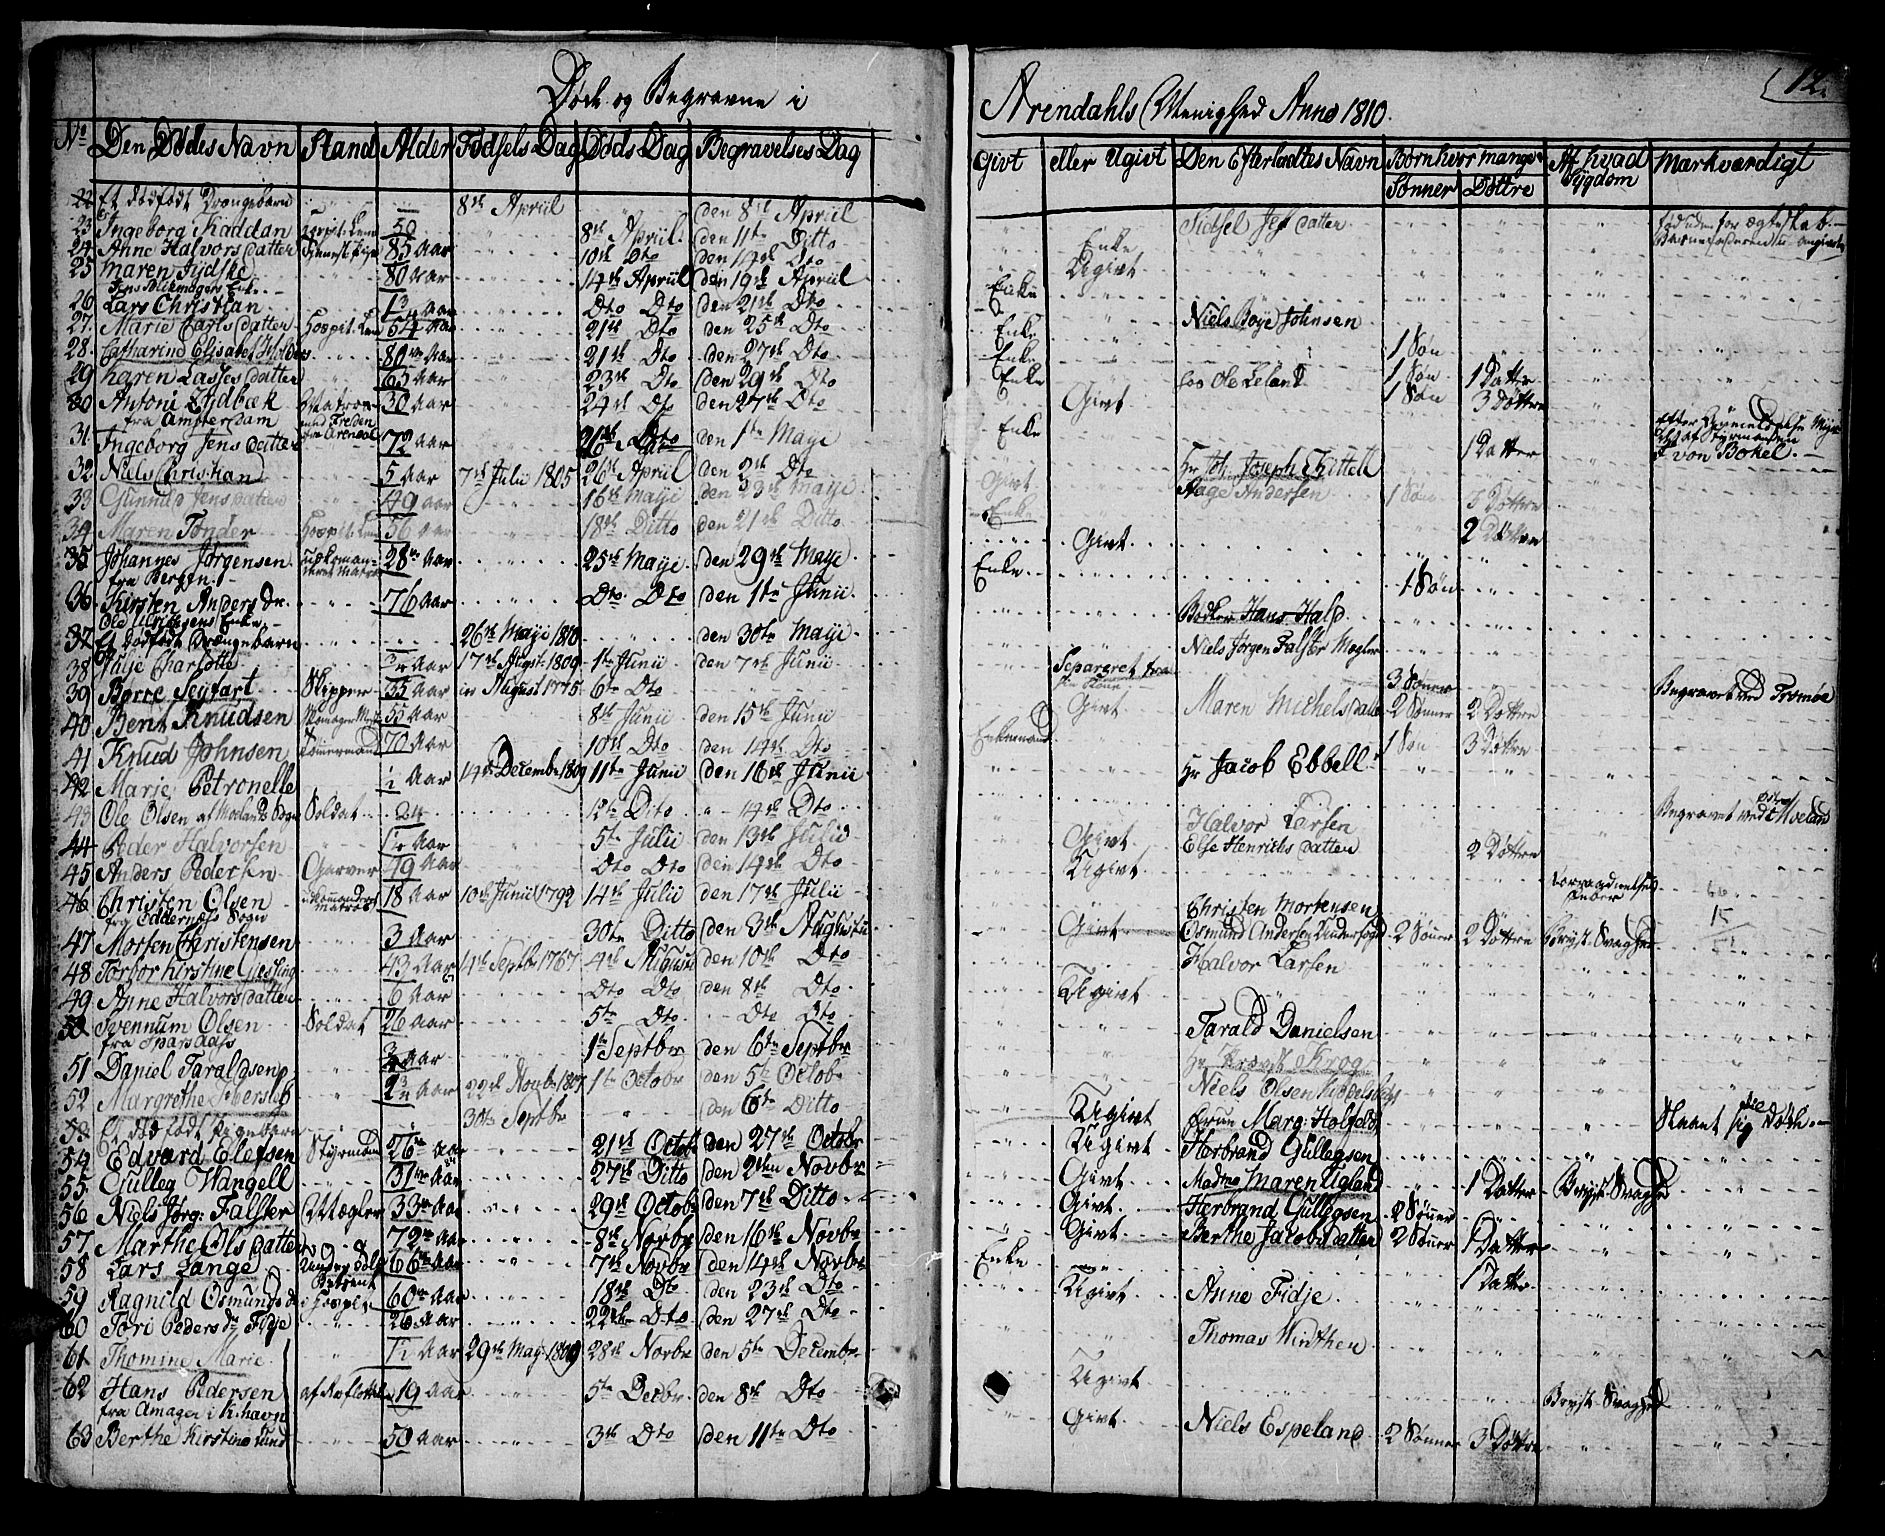 Døde og Begravne i
Arendahls Menighed Anno 1810.
12.
No Den Dødes Navn Stand Alder Fødsels Dag Døds Dag Begravelses Dag
Givt eller Ugivt Den Efterladtes Navn Børn hvor mange Af hvad Sygdom Markværdigt
Sønner Døttre
22 Et dødfødt Drengebarn 8de Apriil den 8de Apriil
23 Ingeborg Kaddan Hospit: Lem 50 8de Apriil den 11te Ditto
24 Anne Halvors datter 85 Aar 10de Dto den 14de Dto
25 Maren Jydske 80 Aar 14de Apriil den 19de Apriil
26 Lars Christian Dto Dto den 21de Dto
27. Marie Carls datter Hospit: Lem 54 Aar 21de Dto den 25de Dto
28. Catharina Elisabet Holders 80 Aar 21de Dto den 27de Dto
29 Karen Lasses datter 65 Aar 23de Dto den 29de Dto
30 Antoni Zydbæk Matros 30 Aar 24de Dto den 27de Dto
fra Amsterdam
31 Ingeborg Jens datter 72 Aar 21de Dto den 1te Maye
32 Niels Christian 5 Aar 7de Julii 1805 26de Apriil den 2de Dto
33 Gunnild Jens datter 49 Aar 16de Maye den 23de Maye
34 Maren Tønder Hospit: Lem 56 Aar 18de Ditto den 21de Ditto
35 Johannes Jørgensen 28 Aar 25de Maye den 29de Maye
fra Bergen.
36 Kirsten Anders Dr. 76 Aar Dto Dto den 1te Junii
37 Et dødfødt Drængebarn 26de Maye 1810 den 30te Maye
38 Julie Charlotte Aar 17de Augst 1809 1te Junii den 7de Junii
39 Børre Seyfart Skipper 35 Aar in August 1775 6te Dto
40 Bent Knudsen 55 Aar 8de Junii den 15de Junii
41 Knud Johnsen Tømermand 70 Aar 10de Dto den 14de Dto
42 Marie Petronelle ½ Aar 14de Decembr 1809 11te Junii den 16de Junii
43 Ole Olsen af Moelands Sogn Soldat 24 12te Dito 14de Dto
44 Peder Halvorsen Aar 5te Julii den 13de Julii
45 Anders Pedersen Garver 79 Aar Dto Dto den 14de Dto
46 Christen Olsen 18 Aar 10de Junii 1792 14de Julii den 17de Julii
fra Oddernæss Sogn
47 Morten Christensen 3 Aar 30te Ditto den 3de Augusti
48 Torbor Kirstine Gjesling 43 Aar 14de Septbr 1767 4de Augusti den 10de Dto
49 Anne Halvors datter 6 Aar Dto Dto den 8de Dto
50 Svennum Olsen Soldat 26 Aar 5te Dto Dto Dto
51 Daniel Taraldsen Aar 1te Septbr den 6te Septbr
52 Margrethe Ebersleb Aar 22de Novbr 1807 1te Octobr den 5te Octobr
53 Et dødfødt Pigebarn 30te Septbr den 6te Ditto
54 Edvard Elefsen Styrmand 26 Aar 21de Octob den 27de Octobr
55 Gulleg Wangell 31 Aar 27de Ditto den 2den Novbr
56 Niels Jørg: Falster Mægler 33 Aar 29de Octob den 7de Ditto
57 Marthe Ols datter 72 Aar 8de Novbr den 16de Novbr
58 Lars Lange 66 Aar 7de Novbr den 14de Novbr
59 Ragnild Osmunds d i Hospit: 60 Aar 18de Dto den 23de Dto
60 Tori Peders dr Fidje 26 Aar 22de Dto den 27de Dto
61 Thomine Marie 1½ Aar 29de May 1809 28de Novbr den 5te Decembr
62 Hans Pedersen 19 Aar 5te Decbr den 8de Dto
fra Amager i K.havn
63 Berthe Kirstine Lund 50 Aar 3de Dto den 11te Dto
Sidsel Jess datter født uden for Ægteskab.
Enke
Ugivt
Enke
Niels Boye Johnsen
Enke
Enke 1 Søn
Enke hos Ole Leland 1 Søn 1 Datter
Givt 1 Søn 3 Døttre
Enke 1 Datter
von Bokel.
Hr Joh. Joseph Chittell
Givt Aage Andersen 1 Søn 3 Døttre
Enke 2 Døttre
Givt.
Enke 1 Søn
Bødker Hans Hals
Niels Jørgen Falster Mægler
Separeret fra 3 Sønner Begravet ved Tromøe
Givt Maren Michels datter 2 Sønner 2 Døttre
Enkemand 1 Søn 3 Døttre
Hr Jacob Ebbell
Begravet ved Østre Moeland
Halvor Larsen
Givt Else Henrichs datter 2 Døttre
Ugivt Forraadnelses Feber
Christen Mortensen
Givt Osmund Andersen 2 Sønner 2 Døttre Bryst Svaghed
Halvor Larsen
Ugivt
Tarald Danielsen
Niels Olsen
Ugivt Marg: Holfeldt
Ugivt Herbrand Gullegsen
Givt Madme Maren Ugland 1 Datter Bryst Svaghed
Givt Herbrand Gullegsen 2 Sønner
Givt Berthe Jacobs datter 2 Sønner 1 Datter
Enke 1 Datter
Ugivt Anne Fidje
Thomas Winther
Ugivt Bryst Svaghed
Givt Niels Espeland 2 Sønner 3 Døttre